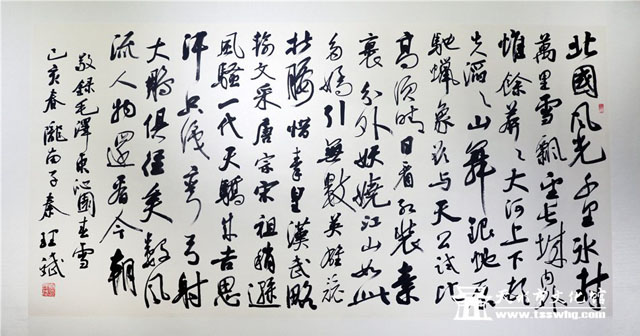 北國風光千里冰封
萬里雪飄望長城內外
惟餘莽〻大河上下頓
失滔〻山舞銀蛇原
馳蠟象欲与天公試比
高須晴日看紅裝素
裹分外妖嬈江山如此
多嬌引無數英雄競
折腰惜秦皇漢武略
輸文采唐宗宋祖稍遜
風騷一代天驕成吉思
汗只識彎弓射
大鵰俱往矣數風
流人物還看今朝
敬錄毛澤東沁園春雪
己亥春隴南子秦
天水市文化馆
www.tsswhg.com